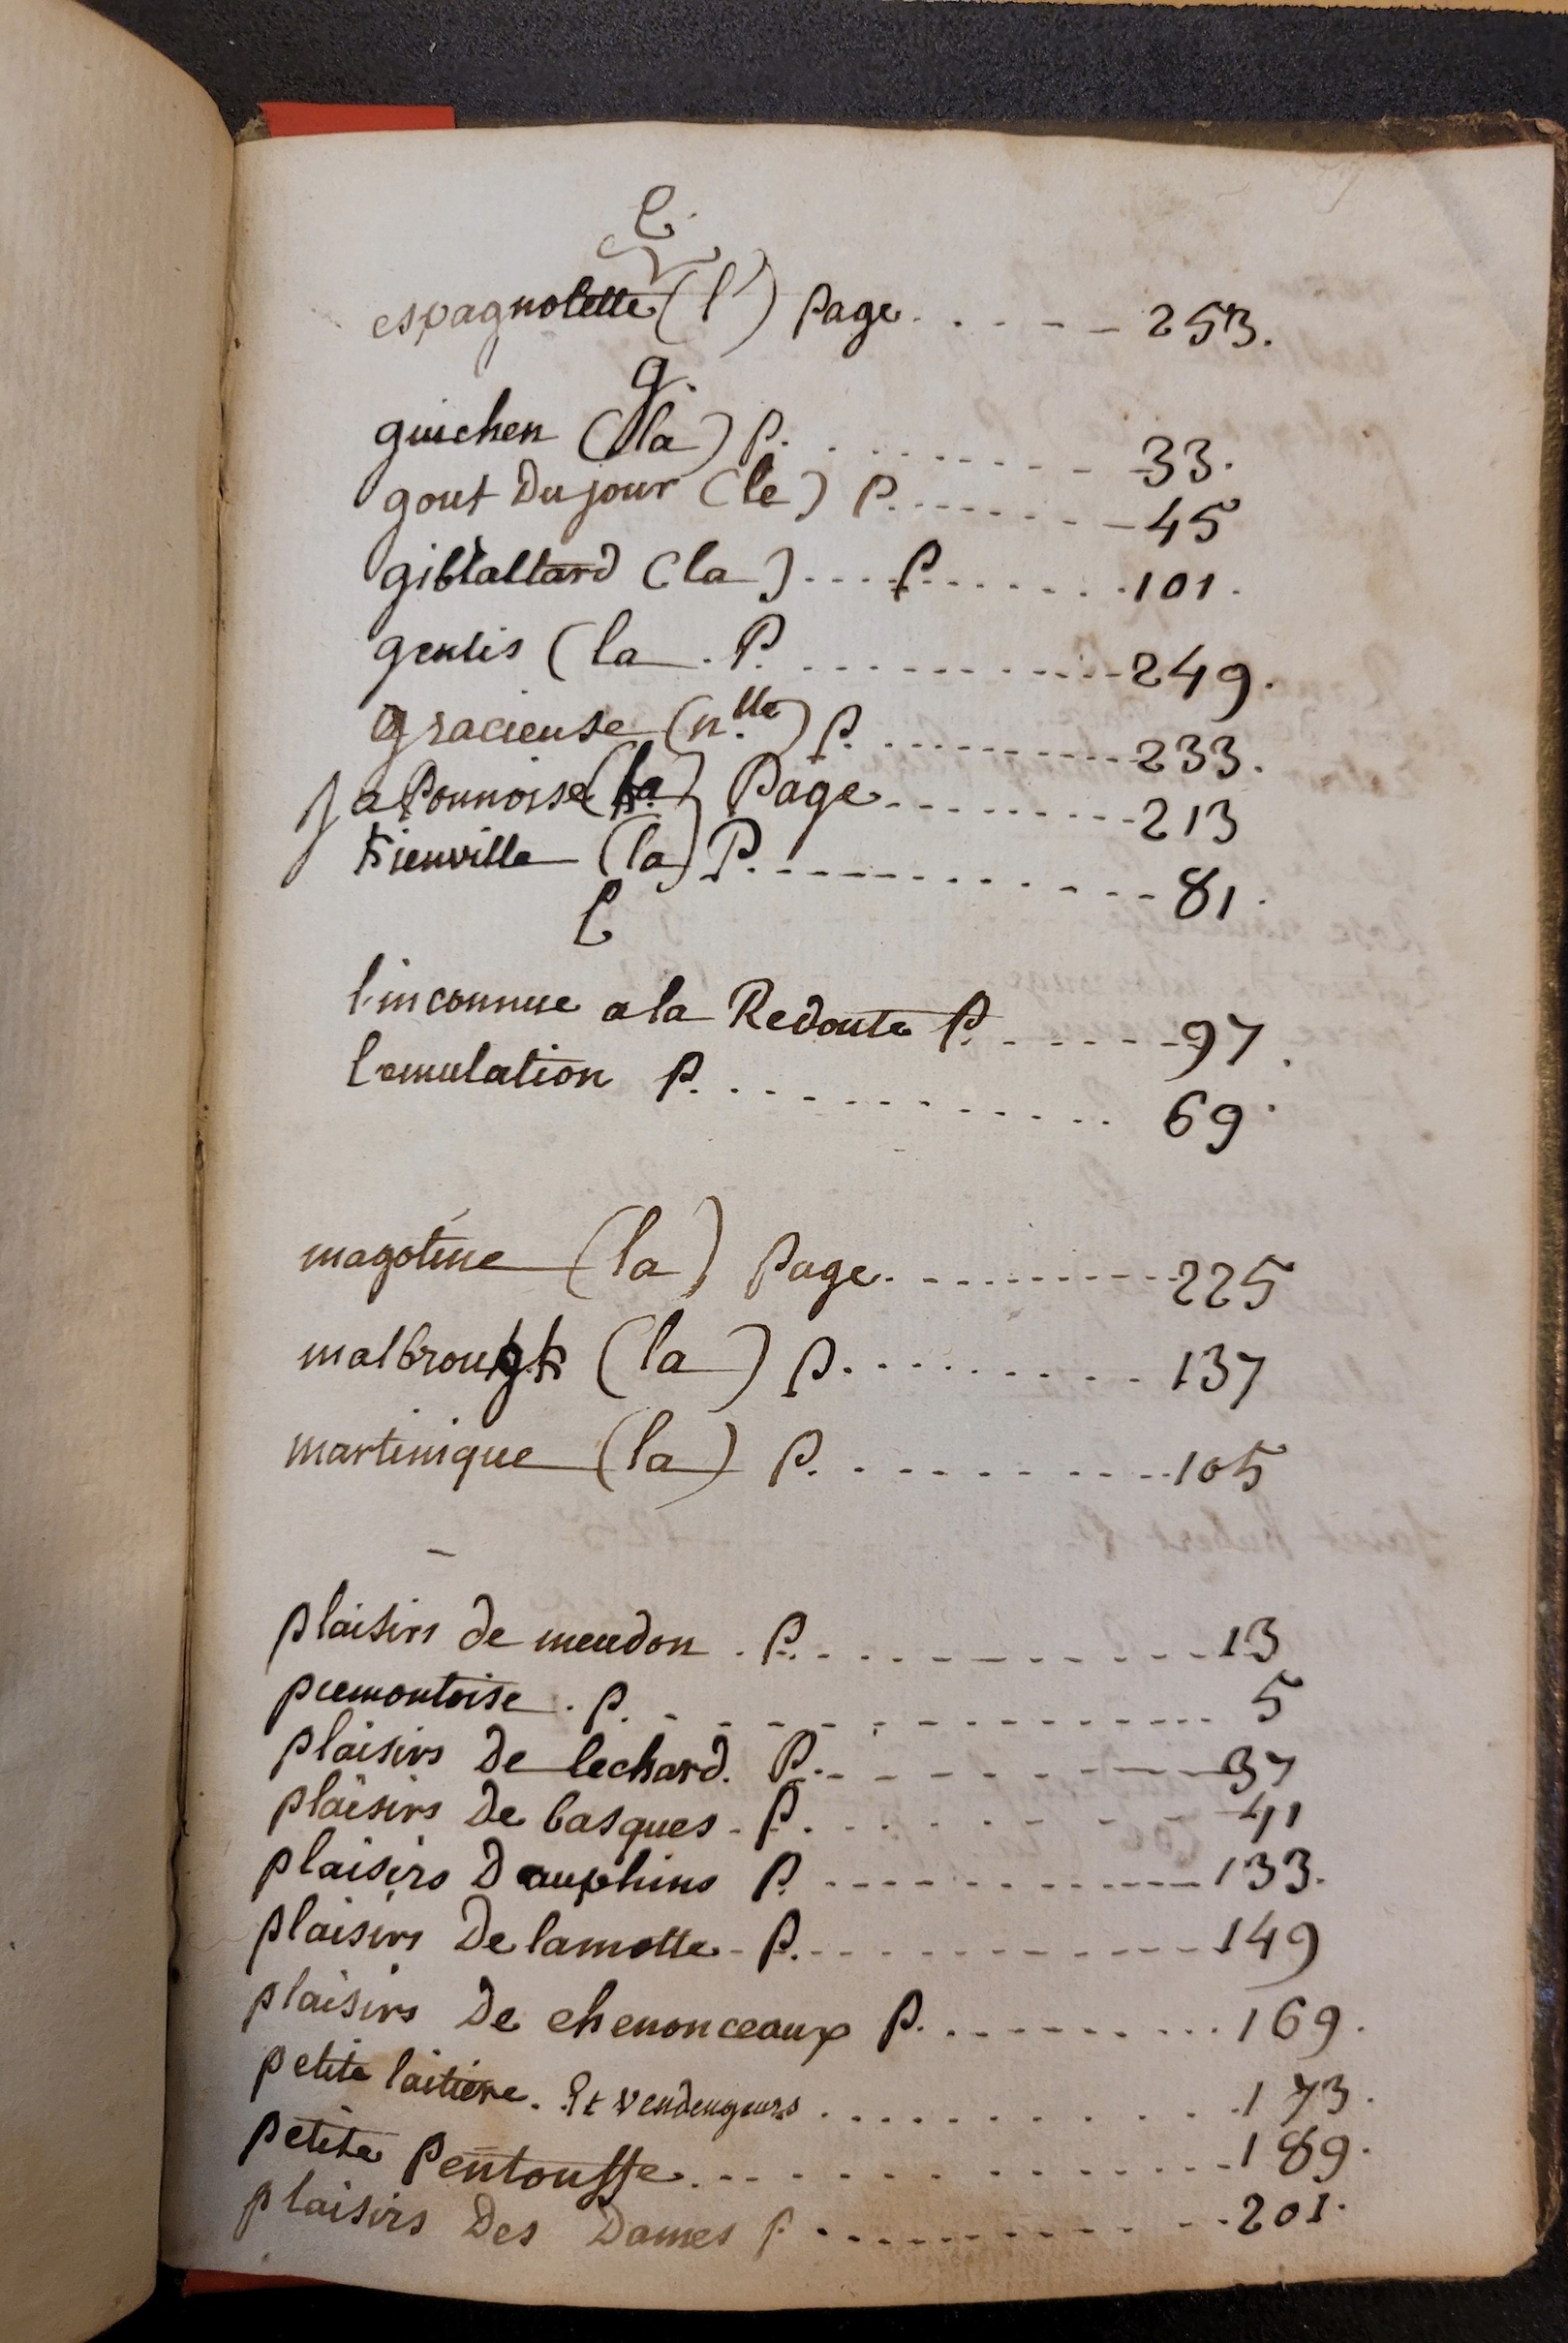 E.
espagnolette (l') page. . . . - - 253.
g.
guichen (la) p. . . . . . . . - - 33.
gout Du jour (le) p. . . . . . . - - 45
gibraltard (la) . . . . p. . . . . . . 101.
genlis (la . p. . . . . . . . . . 249.
gracieuse (n.lle) p. . . . . . . . . 233.
japonnoise (la) page. . . . . . . . 213
Kienville (la) P. . . . . . . . . . 81.
L
l'inconnue a la Redoute p. . . . . . - 97.
l'emulation p. . . . . . . . . . . 69.
magotine (la) page. . . . . . . . . 225
malbrough (la) p. . . . . . . . . 137
martinique (la) p. . . . . . . . . 105
plaisirs de meudon . p. . . . . . . . . . 13
piemontoise . p. . . . . . . . . . . . 5
plaisirs De lechard. p. . . . . . . . . 37
plaisirs De basques - p. . . . . . . . . 41
plaisirs Dauphins p. . . . . . . . . . 133.
plaisirs De lamotte - p. . . . . . . . . 149
plaisirs De chenonceaux p. . . . . . . . . 169.
petite laitiere. Et vendengeurs . . . . . . . . . 173.
petite pentouffle. . . . . . . . . . . . 189.
plaisirs Des Dames p. . . . . . . . . . 201.